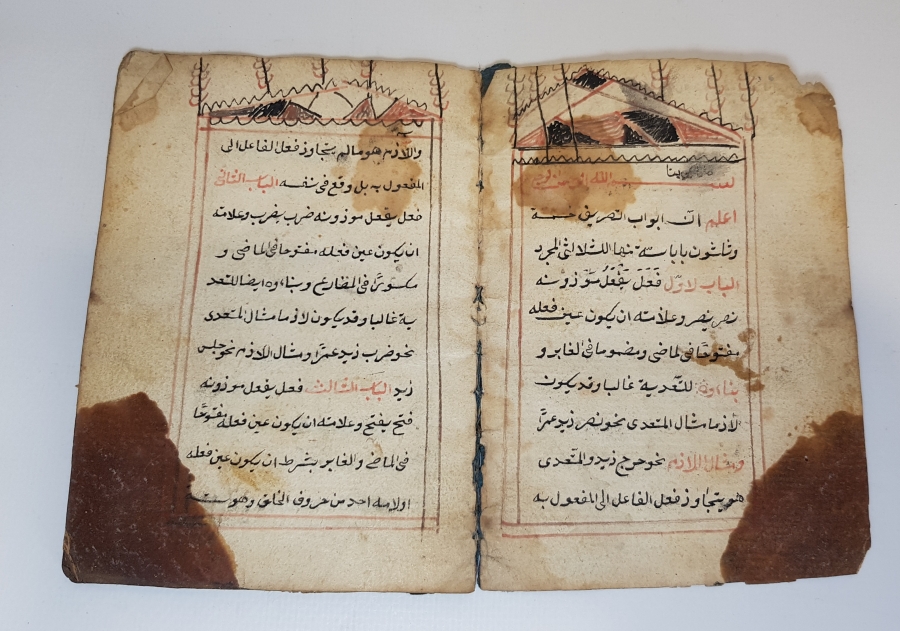 بسم الله الرحمن الرحيم
اعلم ان ابواب التصريف خمسة
وثلثون بابا ستة منها للثلاثي المجرد
الباب الاول فَعَلَ يَفْعُلُ موزونه
نصر ينصر وعلامته ان يكون عين فعله
مفتوحًا في الماضي ومضموما في الغابر و
بناءوه للتعدية غالبا وقد يكون
لازما مثال المتعدى نحو نصر زيد عمرًا
ومثال اللازم نحو خرج زيد والمتعدى
هو يتجاوز فعل الفاعل الى المفعول به
واللازم هو مالم يتجاوز فعل الفاعل الى
المفعول به بل وقع في نفسه الباب الثاني
فعل يفعل موزونه ضرب يضرب وعلامته
ان يكون عين فعله مفتوحا في الماضي و
مكسورًا في المضارع وبناءوه ايضا للتعد
ية غالبا وقد يكون لازما مثال المتعدى
نحو ضرب زيد عمرًا ومثال اللازم نحو جلس
زيد الباب الثالث فعل يفعل موزونه
فتح يفتح وعلامته ان يكون عين فعله مفتوحًا
في الماضي والغابر بشرط ان يكون عين فعله
اولامه احد من حروف الحلق وهو ستة